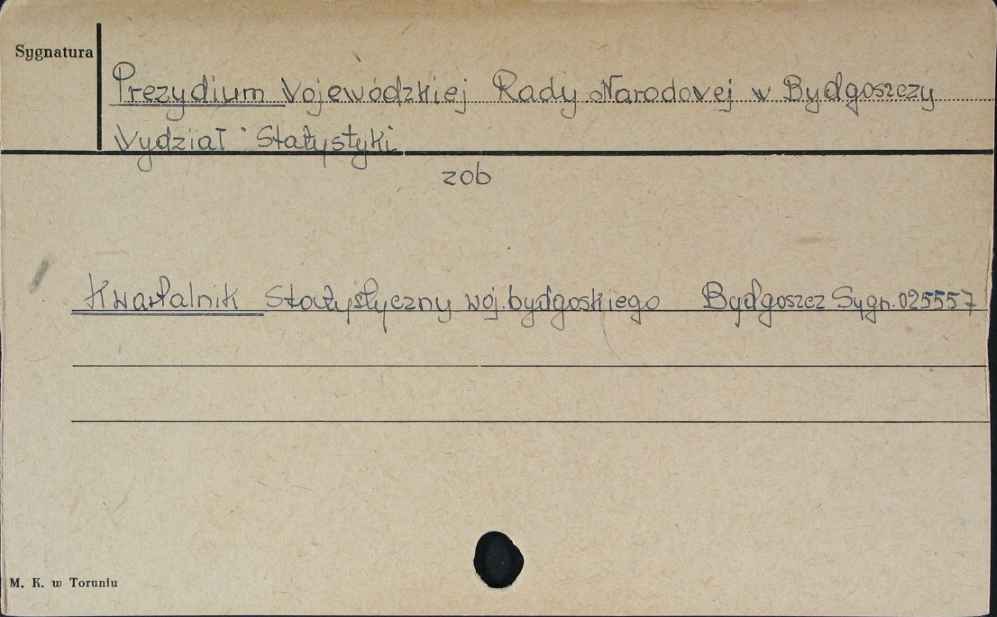 Sygnatura
Prezydium Wojewódzkiej Rady Narodowej w Bydgoszczy
Wydział Statystyki
zob
Kwartalnik Statystyczny woj. bydgoskiego Bydgoszcz Sygn. 025557
M. K. w Toruniu